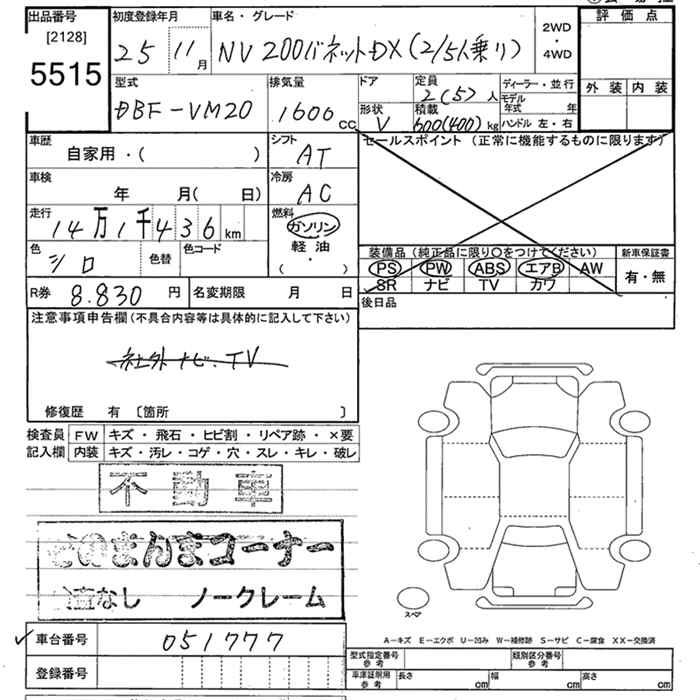 出品番号
[2128]
5515
初度登録年月
25 11月
車名・グレード
NV200バネットDX(2/5人乗り)
2WD
・
4WD
評価点
外装 内装
型式
DBF-VM20
排気量
1600cc
ドア
形状
V
定員
2(5)人
積載
600(400)kg
ディーラー・並行
モデル年式 年
ハンドル 左・右
車歴
自家用・( )
シフト
AT
セールスポイント(正常に機能するものに限ります)
車検
年 月( 日)
冷房
AC
走行
14万1千436km
燃料
ガソリン
軽油
( ・ )
色
シロ
色替
色コード
装備品(純正品に限り○をつけてください)
PS PW ABS エアB AW
SR ナビ TV カワ
新車保証書
有・無
R券 8.830円
名変期限 月 日
後日品
注意事項申告欄(不具合内容等は具体的に記入して下さい)
社外ナビ.TV
修復歴 有 〔箇所 〕
検査員 FW キズ・飛石・ヒビ割・リペア跡・×要
記入欄 内装 キズ・汚レ・コゲ・穴・スレ・キレ・破レ
不動車
そのまんまコーナー
査なし ノークレーム
スペア
✓車台番号 051777
登録番号
A-キズ E-エクボ U-凹み W-補修跡 S-サビ C-腐食 XX-交換済
型式指定番号
参考
類別区分番号
参考
車庫証明用
参考
長さ cm 幅 cm 高さ cm